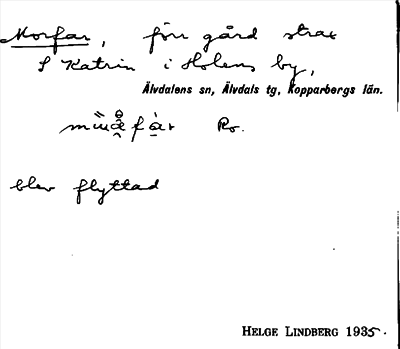 Morfar, förr gård strax
S Katrin i Holens by,
Älvdalens sn, Älvdals tg, Kopparbergs län.
Ro.
blev flyttad
HELGE LINDBERG 1935.